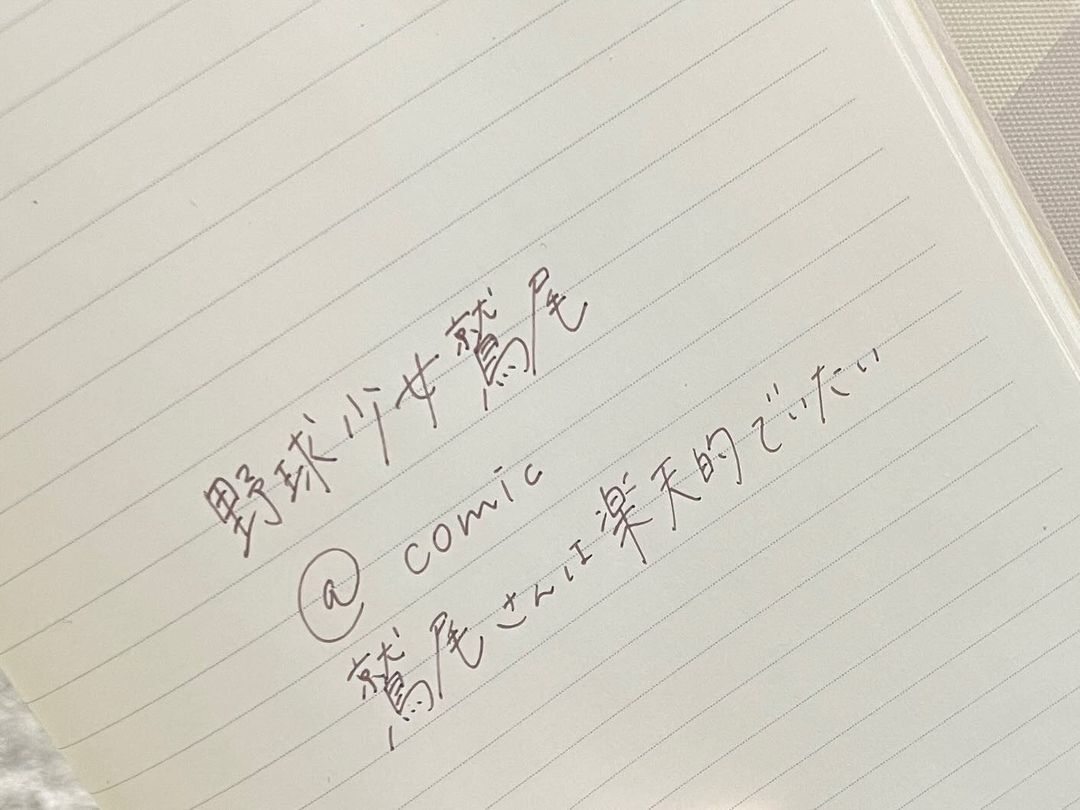 野球少女鷲尾
@comic
鷲尾さんは楽天的でいたい